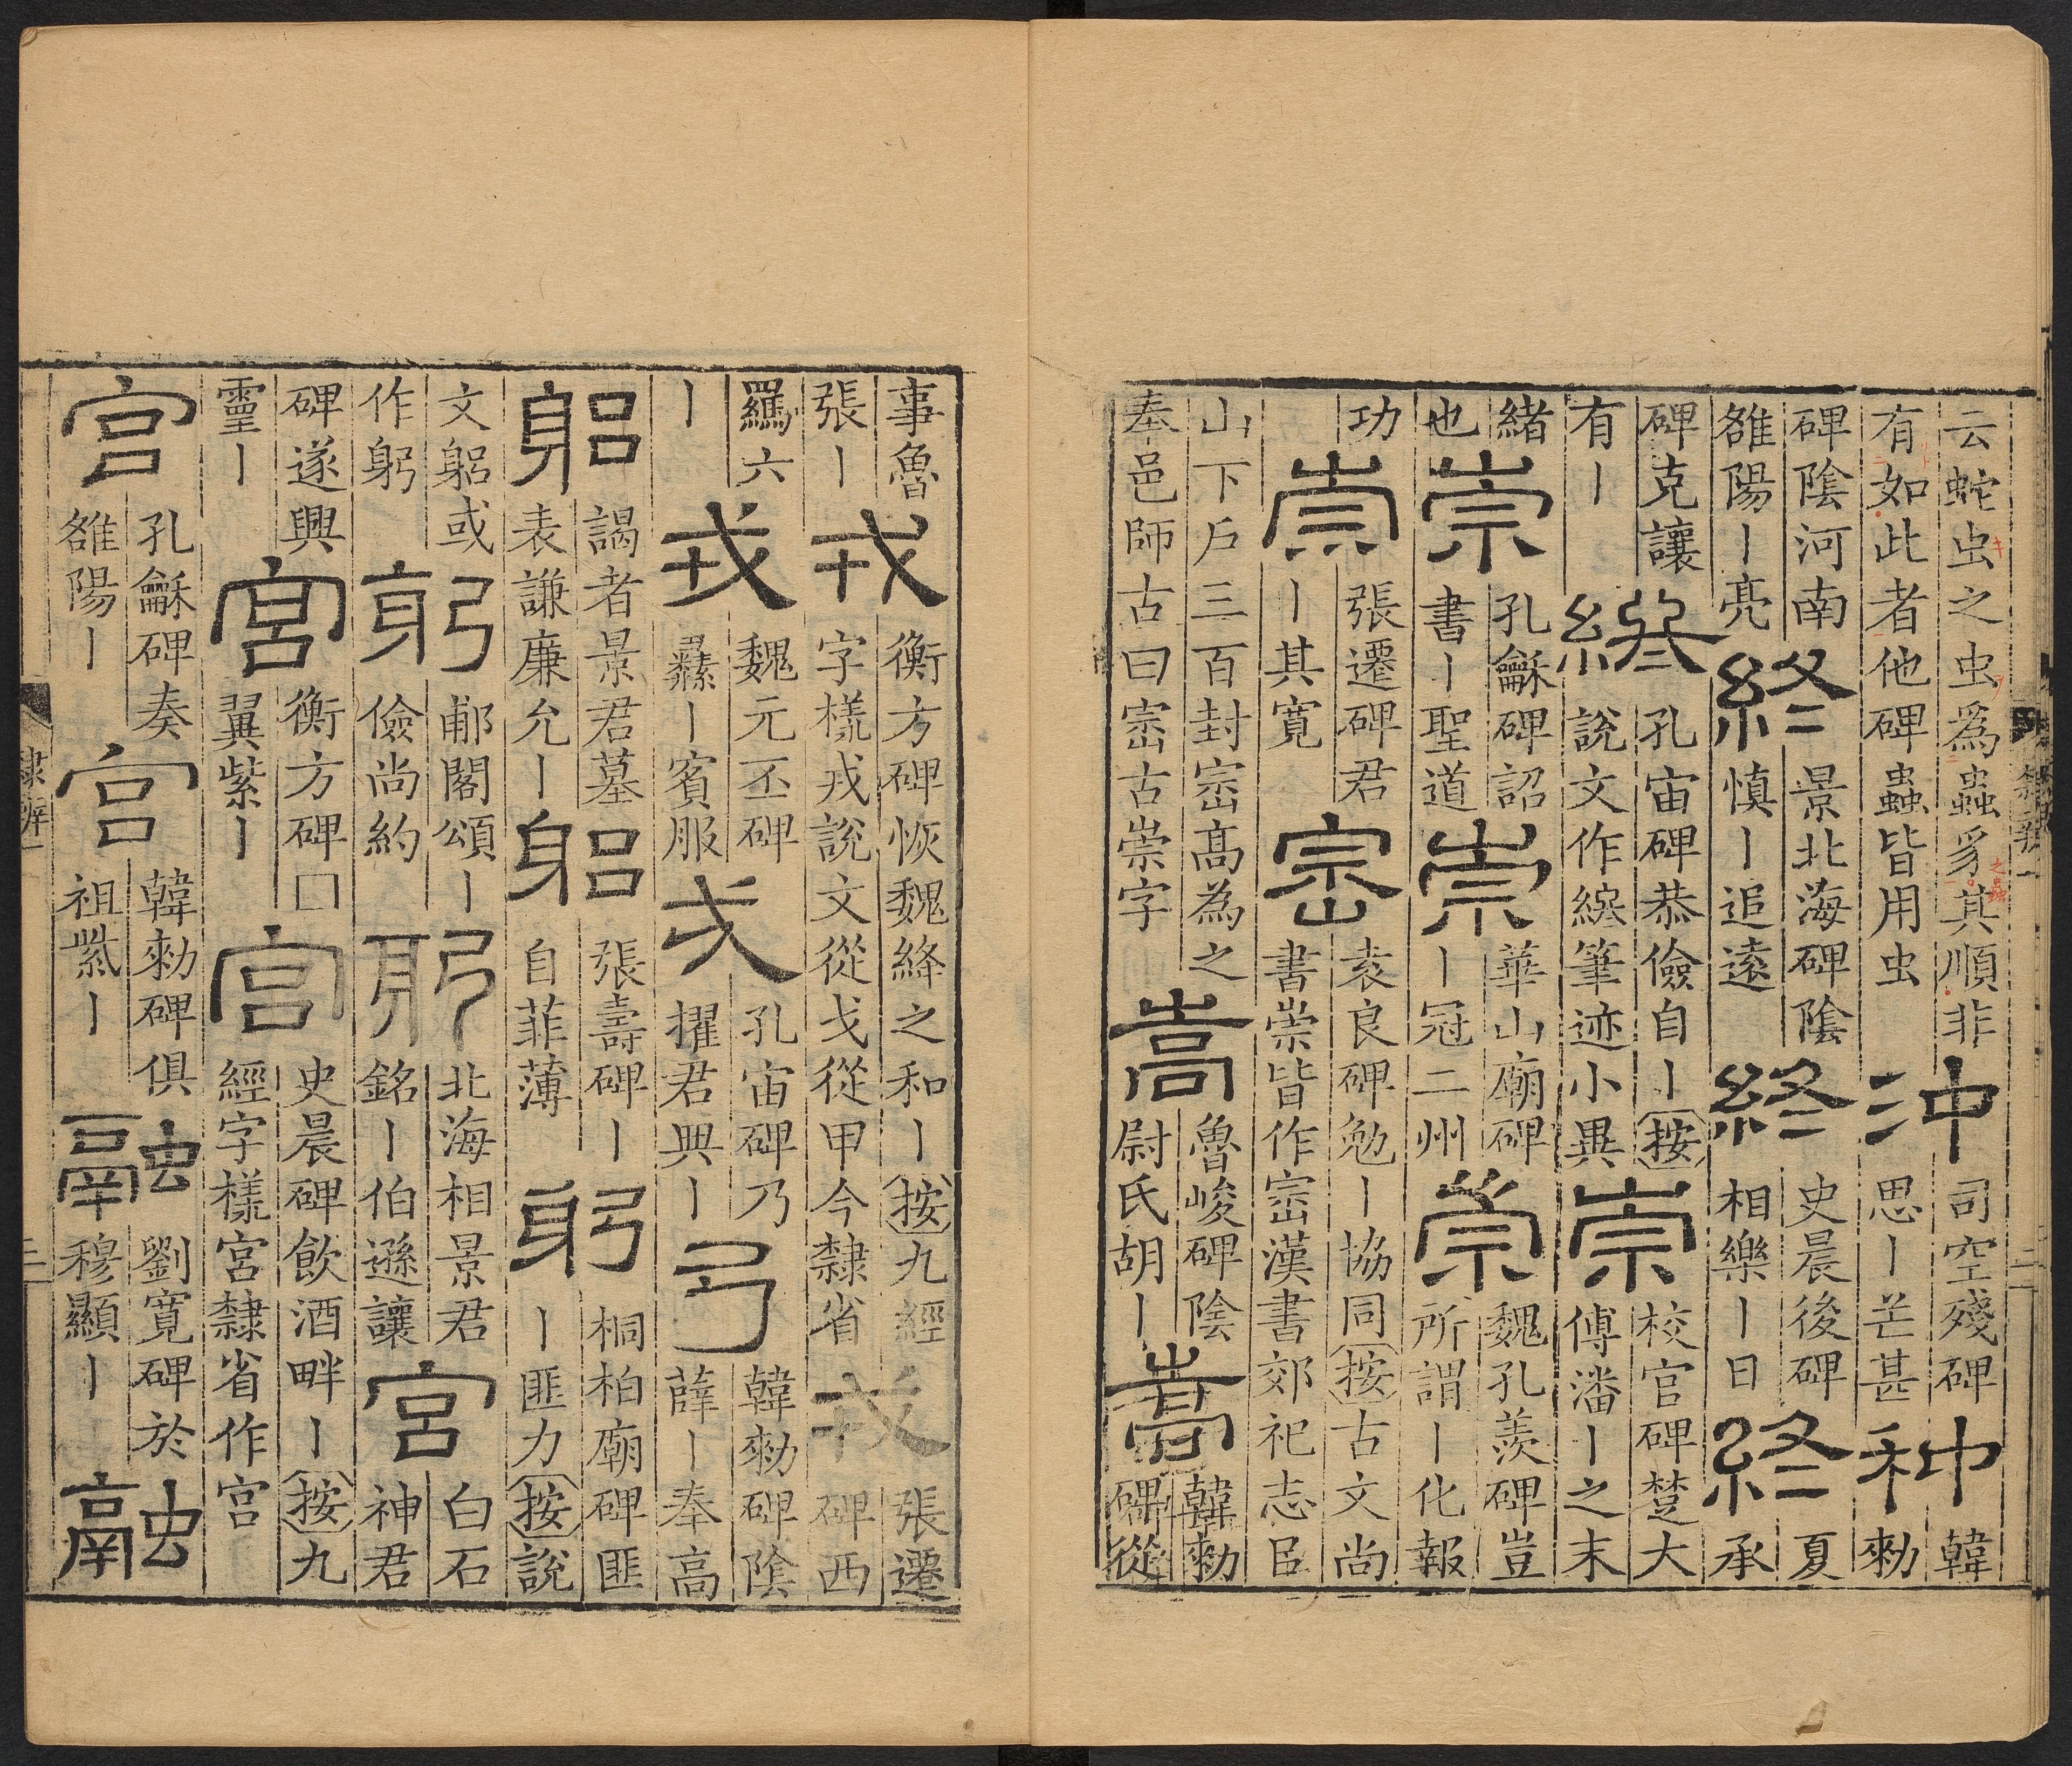 云蛇虫之虫為蟲豸其順非
有如此者他碑蟲皆用虫
沖
司空殘碑
思丨芒甚
种
韓
勑
碑陰河南
雒陽丨亮
終
景北海碑陰
慎丨追遠
終
史晨後碑
相樂丨日
終
夏
承
碑克讓
有丨
終
孔宙碑恭儉自丨按
說文作繎筆迹小異
崇
校官碑楚大
傅潘丨之末
緒
也
崇
孔龢碑詔
書丨聖道
崇
華山廟碑
丨冠二州
崇
魏孔羨碑豈
所謂丨化報
功
崇
張遷碑君
丨其寬
崈
袁良碑勉丨協同按古文尚
書崇皆作崈漢書郊祀志臣
山下戶三百封崈高為之
奉邑師古曰崈古崇字
嵩
魯峻碑陰
尉氏胡丨
嵩
韓勑
碑從
事魯
張丨
戎
衡方碑恢魏絳之和丨按九經
字樣戎說文從戈從甲今隸省
戎
張遷
碑西
羈六
丨
戎
魏元丕碑
彞丨賓服
戎
孔宙碑乃
擢君興丨
弓
韓勑碑陰
薛丨奉高
躳
謁者景君墓
表謙廉允丨
躳
張壽碑丨
自菲薄
躬
桐柏廟碑匪
丨匪力按說
文躳或
作躬
躬
郙閣頌丨
儉尚約
躬
北海相景君
銘丨伯遜讓
宮
白石
神君
碑遂興
靈丨
宮
衡方碑□
翼紫丨
宫
史晨碑飲酒畔丨按九
經字樣宮隸省作宫
宫
孔龢碑奏
雒陽丨
宫
韓勑碑俱
祖紫丨
融
劉寬碑於
穆顯丨
融
隸辨一
二